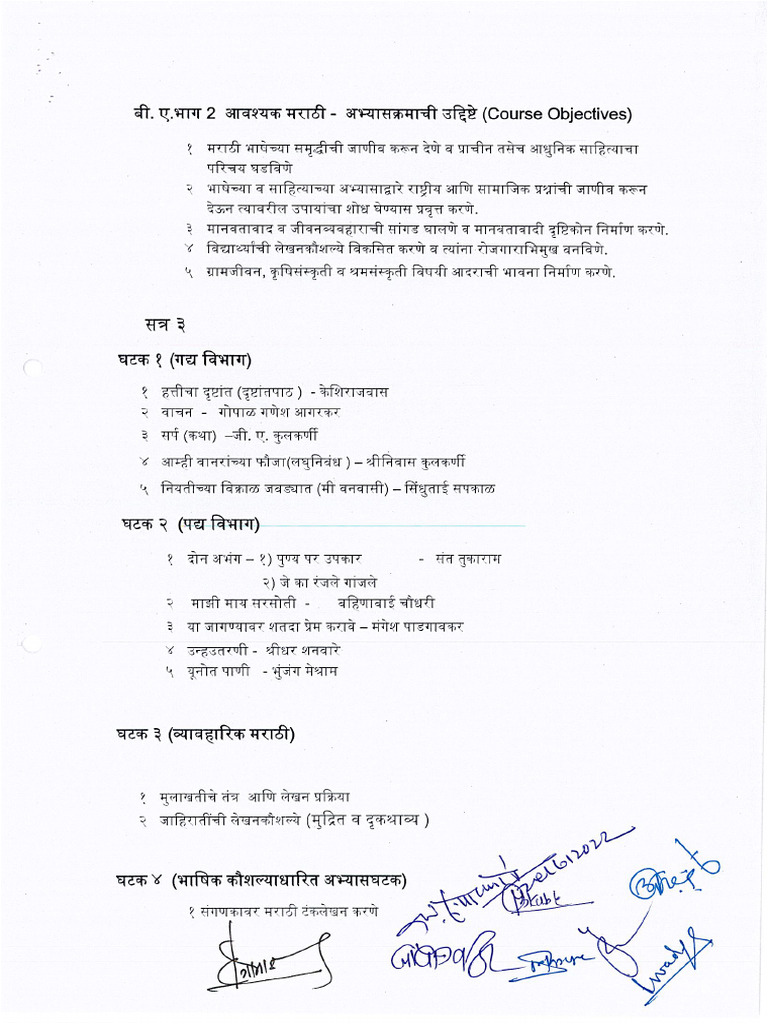 बी. ए.भाग 2 आवश्यक मराठी - अभ्यासक्रमाची उद्दिष्टे (Course Objectives)
१ मराठी भाषेच्या समृद्धीची जाणीव करून देणे व प्राचीन तसेच आधुनिक साहित्याचा
परिचय घडविणे
२ भाषेच्या व साहित्याच्या अभ्यासाद्वारे राष्ट्रीय आणि सामाजिक प्रश्नांची जाणीव करून
देऊन त्यावरील उपायांचा शोध घेण्यास प्रवृत्त करणे.
३ मानवतावाद व जीवनव्यवहाराची सांगड घालणे व मानवतावादी दृष्टिकोन निर्माण करणे.
४ विद्यार्थ्यांची लेखनकौशल्ये विकसित करणे व त्यांना रोजगाराभिमुख बनविणे.
५ ग्रामजीवन, कृषिसंस्कृती व श्रमसंस्कृती विषयी आदराची भावना निर्माण करणे.
सत्र ३
घटक १ (गद्य विभाग)
१ हत्तीचा दृष्टांत (दृष्टांतपाठ ) - केशिराजवास
२ वाचन - गोपाळ गणेश आगरकर
३ सर्प (कथा) –जी. ए. कुलकर्णी
४ आम्ही वानरांच्या फौजा(लघुनिबंध ) – श्रीनिवास कुलकर्णी
५ नियतीच्या विक्राळ जबड्यात (मी वनवासी) – सिंधुताई सपकाळ
घटक २ (पद्य विभाग)
१ दोन अभंग – १) पुण्य पर उपकार - संत तुकाराम
२) जे का रंजले गांजले
२ माझी माय सरसोती - बहिणाबाई चौधरी
३ या जागण्यावर शतदा प्रेम करावे – मंगेश पाडगावकर
४ उन्हउतरणी - श्रीधर शनवारे
५ यूनोत पाणी - भुंजंग मेश्राम
घटक ३ (व्यावहारिक मराठी)
१ मुलाखतीचे तंत्र आणि लेखन प्रक्रिया
२ जाहिरातींची लेखनकौशल्ये (मुद्रित व दृकश्राव्य )
घटक ४ (भाषिक कौशल्याधारित अभ्यासघटक)
१ संगणकावर मराठी टंकलेखन करणे